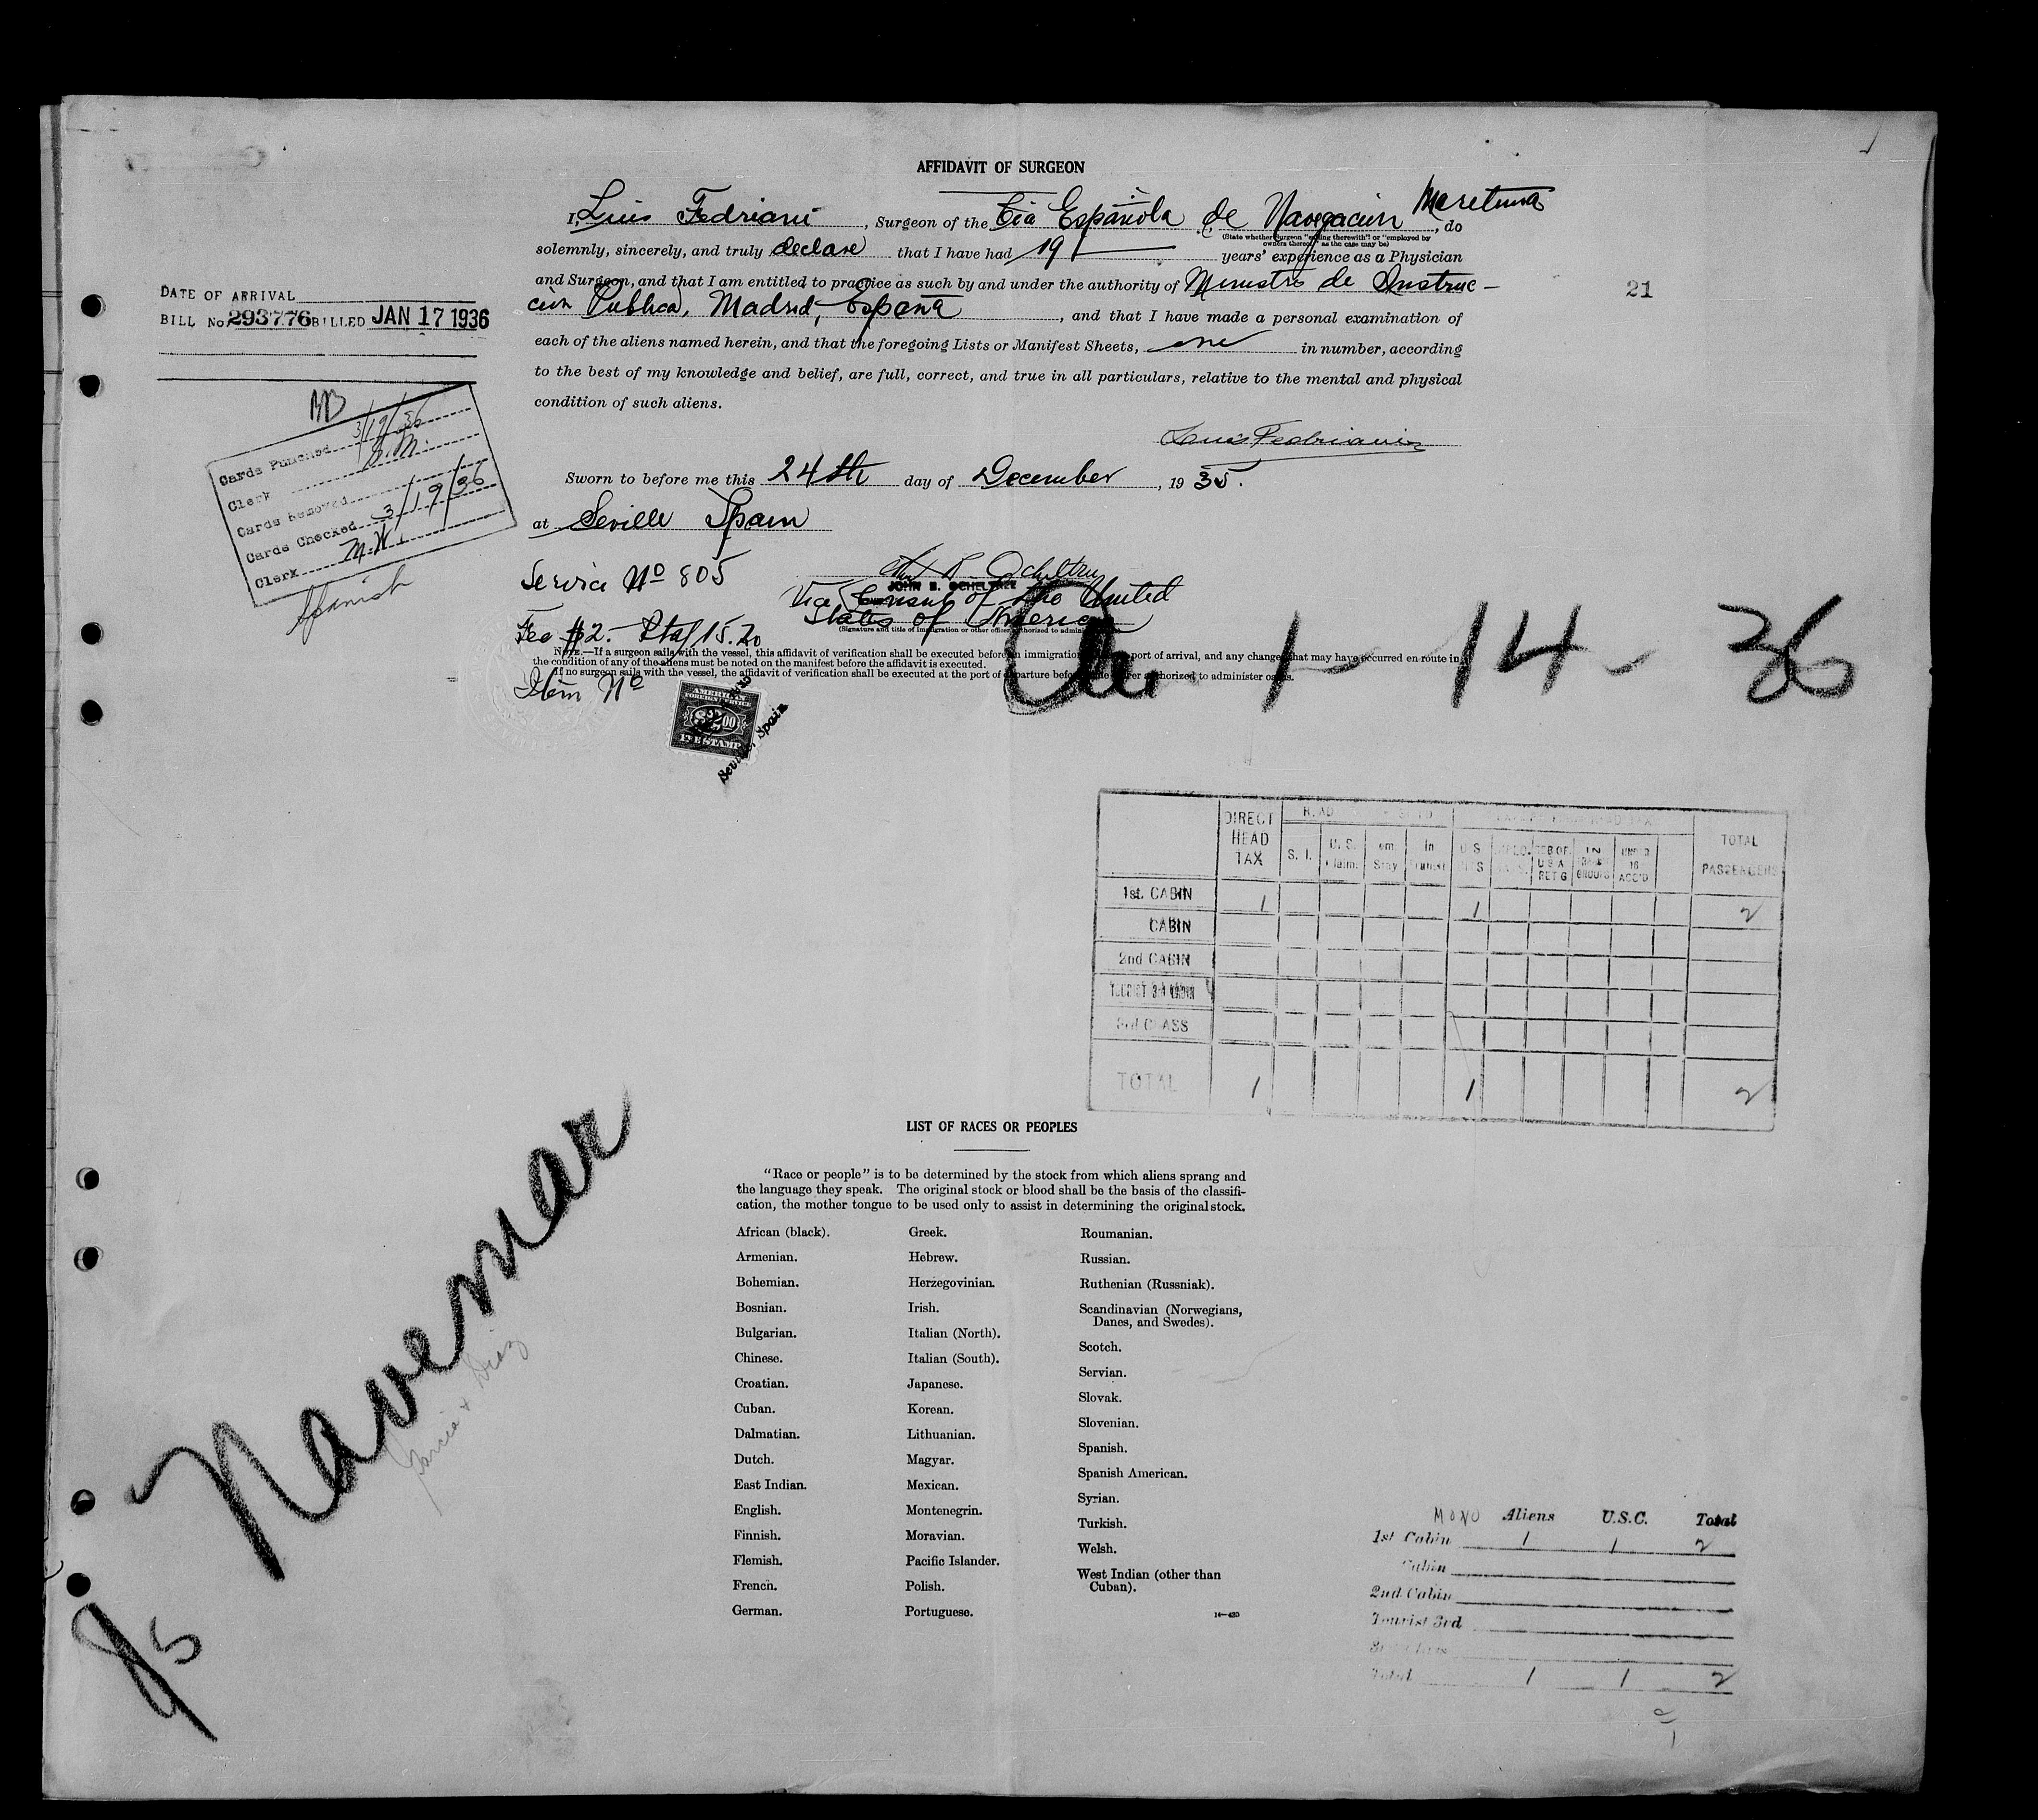 AFFIDAVIT OF SURGEON
I, Luis Fedriani, Surgeon of the Cia Española de Navegacion Maritima, do
(State whether Surgeon "sailing therewith" or "employed by
owners thereof," as the case may be)
solemnly, sincerely, and truly declare that I have had 19 years' experience as a Physician
and Surgeon, and that I am entitled to practice as such by and under the authority of Ministro de Instruc-
cion Publica, Madrid, España, and that I have made a personal examination of
each of the aliens named herein, and that the foregoing Lists or Manifest Sheets, one in number, according
to the best of my knowledge and belief, are full, correct, and true in all particulars, relative to the mental and physical
condition of such aliens.
Luis Fedriani
Sworn to before me this 24th day of December, 1935.
at Seville Spain
21
DATE OF ARRIVAL
BILL No. 293776 BILLED JAN 17 1936
Cards Punched 3/19/36
Clerk
Cards Removed
Cards Checked 3/19/36
Clerk M.W.
Spanish
Service No 805
JOHN E. OCHELTREE
Vice Consul of the United
States of America
(Signature and title of immigration or other officer authorized to administer
Fee $2.
NOTE.—If a surgeon sails with the vessel, this affidavit of verification shall be executed before an immigration port of arrival, and any change that may have occurred en route in
the condition of any of the aliens must be noted on the manifest before the affidavit is executed.
If no surgeon sails with the vessel, the affidavit of verification shall be executed at the port of departure before authorized to administer oaths.
Item No
AMERICAN
FOREIGN SERVICE
$2.00
FEE STAMP
Seville, Spain
1-14-36
DIRECT HEAD TAX
S. I.
U. S. Claim.
In Transit
TOTAL PASSENGERS
1st. CABIN 1 1 2
CABIN
2nd CABIN
TOURIST 3rd CABIN
3rd CLASS
TOTAL 1 1 2
LIST OF RACES OR PEOPLES
"Race or people" is to be determined by the stock from which aliens sprang and
the language they speak. The original stock or blood shall be the basis of the classifi-
cation, the mother tongue to be used only to assist in determining the original stock.
African (black).
Armenian.
Bohemian.
Bosnian.
Bulgarian.
Chinese.
Croatian.
Cuban.
Dalmatian.
Dutch.
East Indian.
English.
Finnish.
Flemish.
French.
German.
Greek.
Hebrew.
Herzegovinian.
Irish.
Italian (North).
Italian (South).
Japanese.
Korean.
Lithuanian.
Magyar.
Mexican.
Montenegrin.
Moravian.
Pacific Islander.
Polish.
Portuguese.
Roumanian.
Russian.
Ruthenian (Russniak).
Scandinavian (Norwegians,
Danes, and Swedes).
Scotch.
Servian.
Slovak.
Slovenian.
Spanish.
Spanish American.
Syrian.
Turkish.
Welsh.
West Indian (other than
Cuban).
14—430
Navemar
Garcia & Diaz
MONO Aliens U.S.C. Total
1st Cabin 1 1 2
Cabin
2nd Cabin
Tourist 3rd
Total 1 1 2